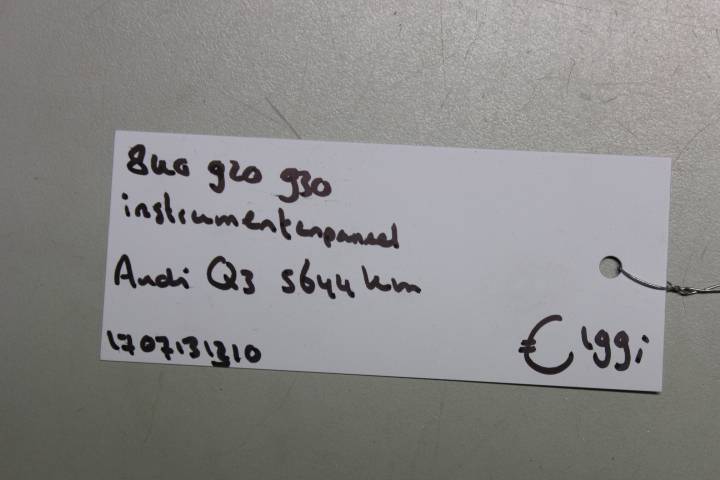 8u0 920 930
instrumentenpaneel
Audi Q3 5644 km
1707131310
€ 199,